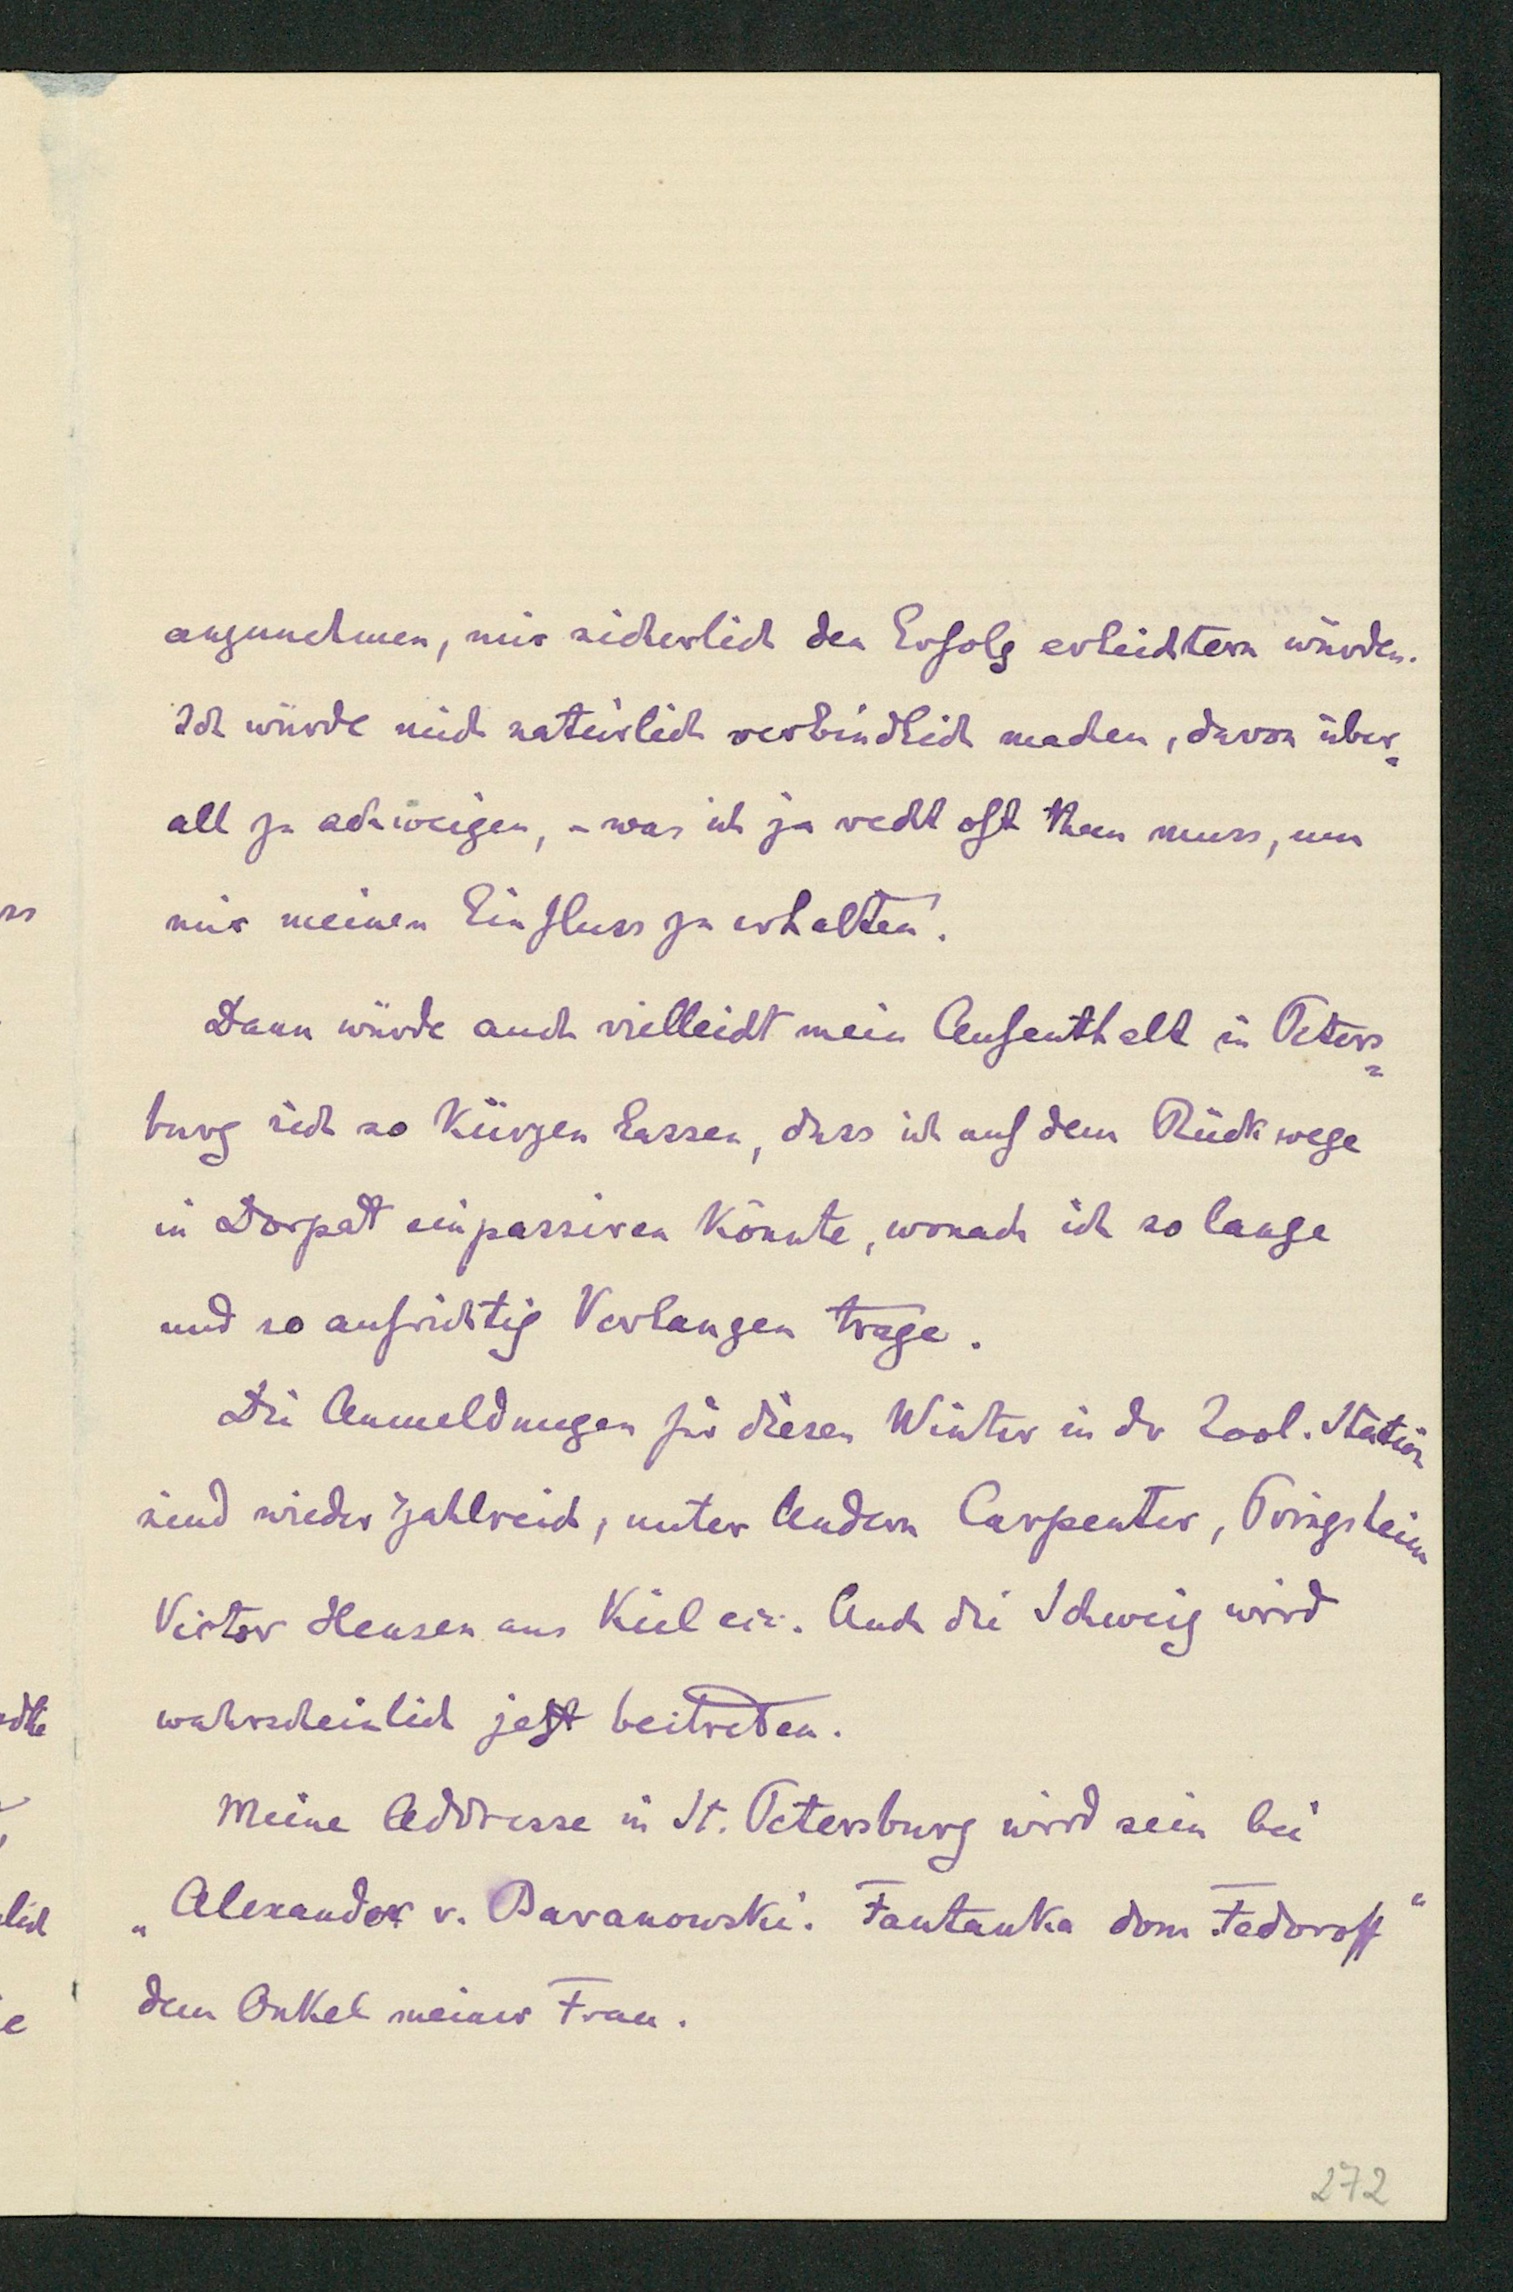 anzunehmen, mir sicherlich den Erfolg erleichtern würden.
Ich würde mich natürlich verbindlich machen, davon über-
all zu schweigen, – was ich ja recht oft thun muss, um
mir meinen Einfluss zu erhalten.
Dann würde auch vielleicht mein Aufenthalt in Peters-
burg sich so kürzen lassen, dass ich auf dem Rückwege
in Dorpat einpassiren könnte, wonach ich so lange
und so aufrichtig Verlangen trage.
Die Anmeldungen für diesen Winter in der Zool. Station
sind wieder zahlreich, unter Andern Carpenter, Pringsheim
Victor Hensen aus Kiel etc. Auch die Schweiz wird
wahrscheinlich jetzt beitreten.
Meine Addresse in St. Petersburg wird sein bei
„Alexander v. Baranowski. Fantanka dom Fedoroff"
dem Onkel meiner Frau.
272